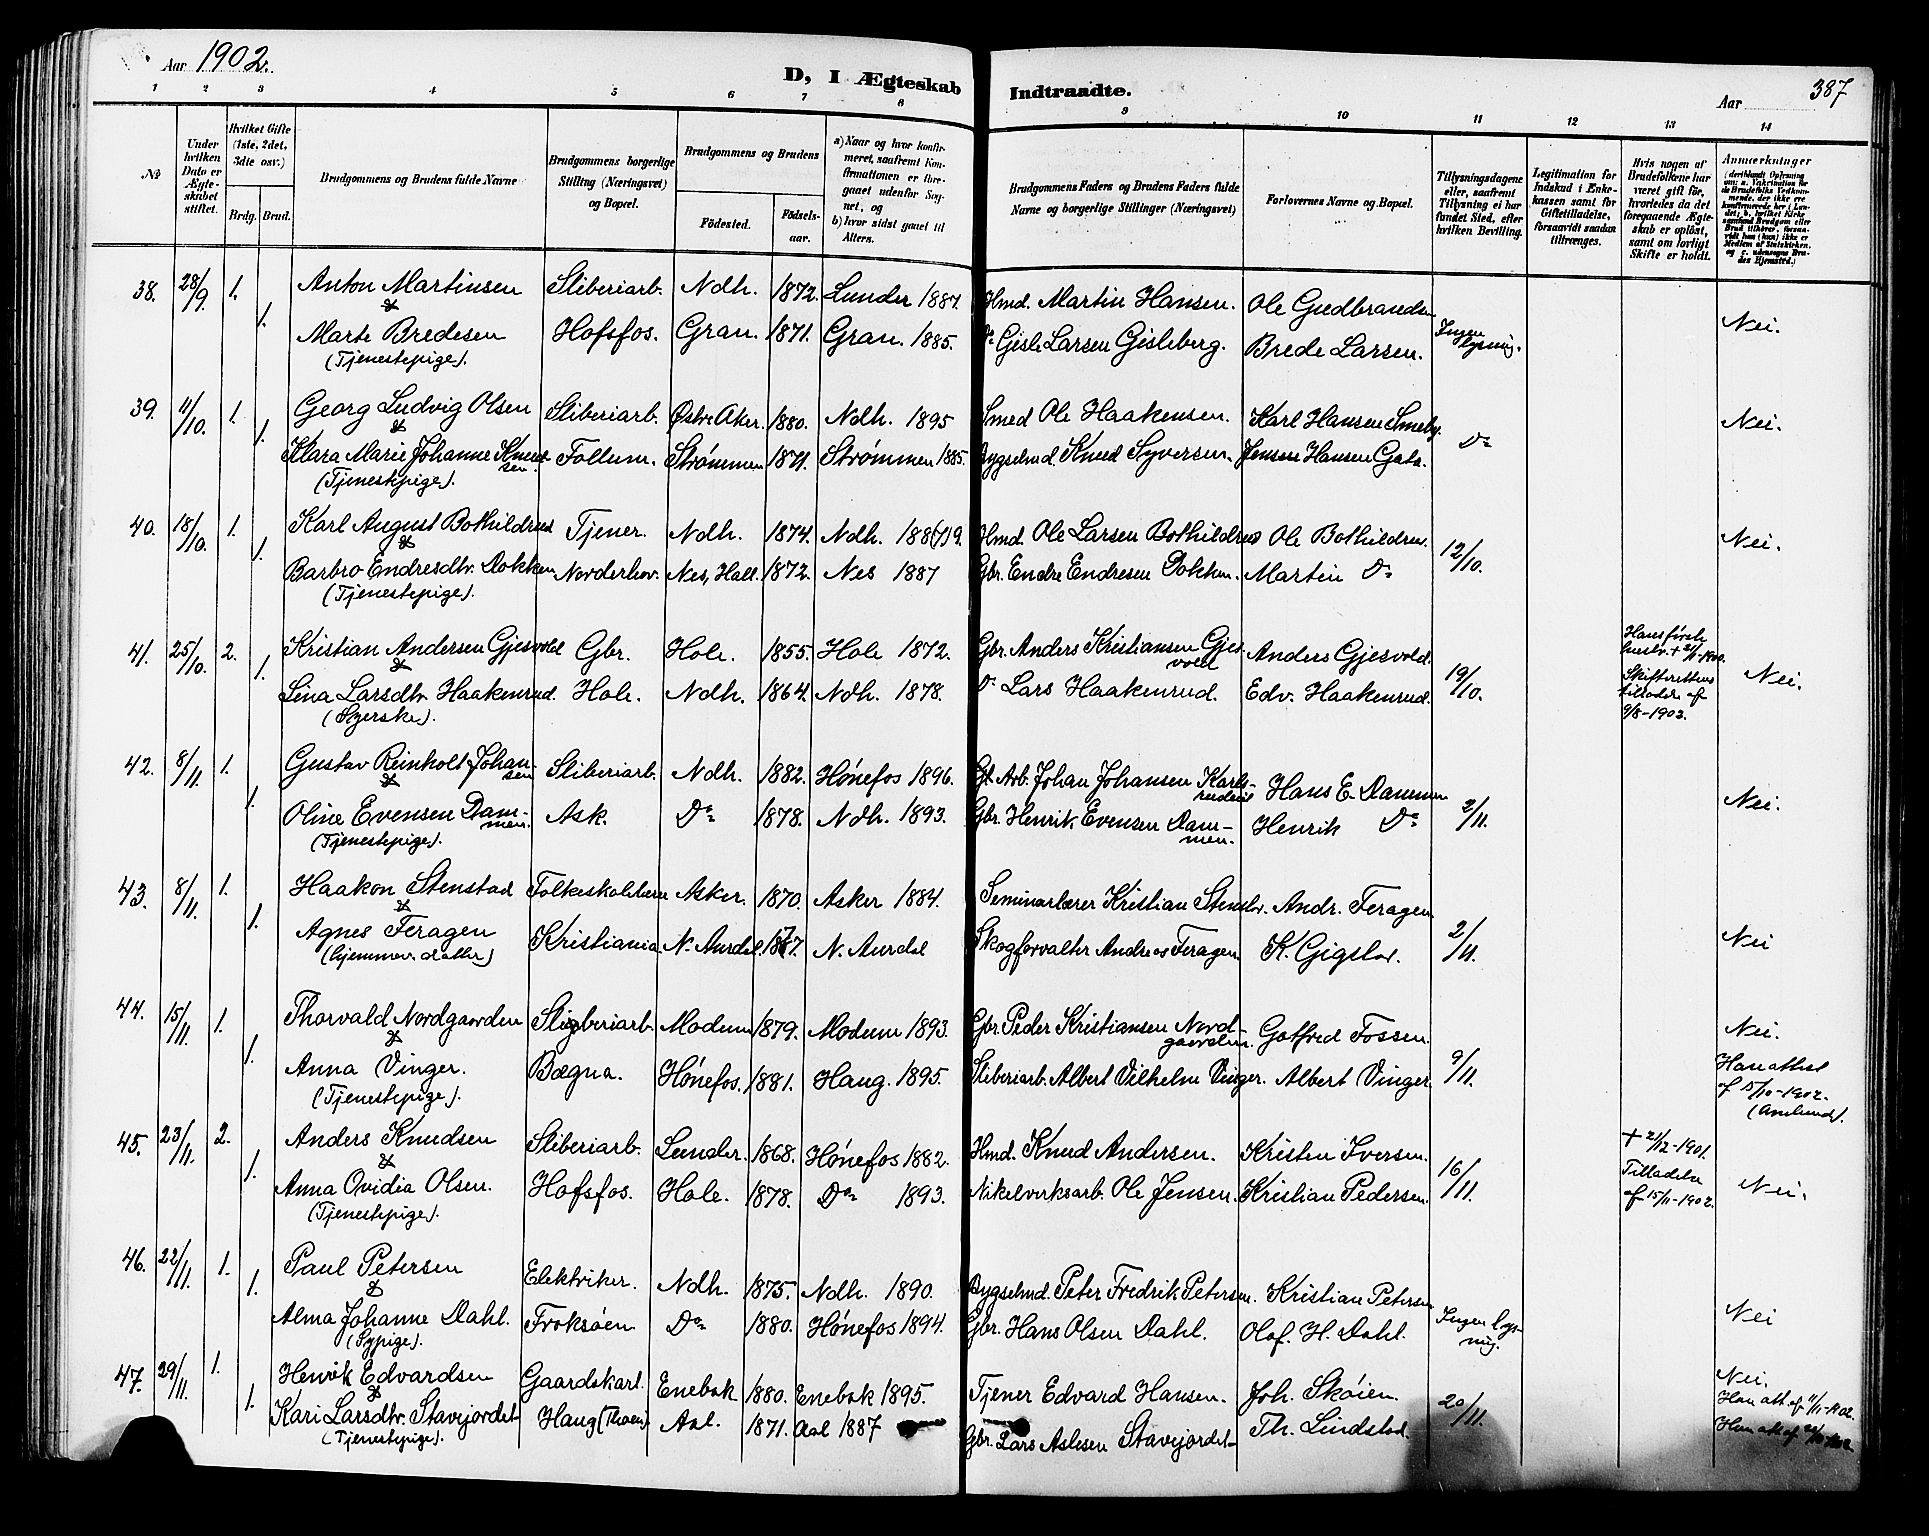 Aar 1902.
D, I Ægteskab Indtraadte.
Aar 387
1 2 3 4 5 6 7 8 9 10 11 12 13 14
№
Under hvilken Dato er Ægteskabet stiftet.
Hvilket Gifte (1ste, 2det, 3die osv.)
Brdg. Brud.
Brudgommens og Brudens fulde Navne
Brudgommens borgerlige Stilling (Næringsvei) og Bopæl.
Brudgommens og Brudens
Födested. Födselsaar.
a) Naar og hvor konfirmeret, saafremt Konfirmationen er foregaaet udenfor Sognet, og
b) hvor sidst gaaet til Alters.
Brudgommens Faders og Brudens Faders fulde Navne og borgerlige Stillinger (Næringsvei)
Forlovernes Navne og Bopæl.
Tillysningsdagene eller, saafremt Tillysning ei har fundet Sted, efter hvilken Bevilling.
Legitimation for Indskud i Enkekassen samt for Giftetilladelse, forsaavidt saadan tiltrænges.
Hvis nogen af Brudefolkene har været gift før, hvorledes da det foregaaende Ægteskab er opløst, samt om lovligt Skifte er holdt.
Anmærkninger
38. 28/9. 1. Anton Martinsen Sliberiarb. Ndh. 1872. Lunder 1887. Hmd. Martin Hansen. Ole Gudbrandsen
& 1. Nei.
Marte Bredesen Hofsfos. Gran. 1871. Gran. 1885. Do Gisle Larsen Gisleberg. Brede Larsen. Ingen lysning.
(Tjenestepige).
39. 11/10. 1. Georg Ludvig Olsen Sliberiarb. Østre Aker. 1880. Ndh. 1895 Smed Ole Haakensen. Karl Hansen Smeby. Nei.
& 1.
Klara Marie Johanne Knudsen. Follum. Strømmen 1871. Strømmen 1885. Bygselmd. Knud Syversen. Jensen Hansen Gata. Do
(Tjenestepige).
40. 18/10. 1. Karl August Bothildrud Tjener. Ndh. 1874. Ndh. 188(7)9. Hmd. Ole Larsen Bothildrud Ole Bothildrud. Nei.
& 1.
Barbro Endresdtr. Dokken Norderhov. Nes, Hall. 1872. Nes 1887 Gbr. Endre Endresen Dokken. Martin Do 12/10.
(Tjenestepige).
41. 25/10. 2. Kristian Andersen Gjesvold Gbr. Hole. 1855. Hole 1872. Gbr. Anders Kristiansen Gjesvold Anders Gjesvold. Hans første hustr. + 2/11-1900. Nei.
& 1.
Lina Larsdtr. Haakenrud. Hole. Ndh. 1864. Ndh. 1878. Do Lars Haakenrud. Edv. Haakenrud. 19/10. Skifterettens tillad. af 9/8-1902.
(Syerske).
42. 8/11. 1. Gustav Reinholt Johansen Sliberiarb. Ndh. 1882. Hønefos 1896. Arb. Johan Johansen Hans E. Dammen
& 1. Nei.
Oline Evensen Dammen. Ask. Do 1878. Ndh. 1893. Gbr. Henrik Evensen Dammen. Henrik Do 2/11.
(Tjenestepige).
43. 8/11. 1. Haakon Stenstad Folkeskolelærer Asker. 1870. Asker 1884. Seminarlærer Kristian Andr. Feragen.
& 1.
Agnes Feragen Kristiania. N. Aurdal. 1877. N. Aurdal Skogforvalter Andreas Feragen. K. 2/11. Nei
(hjemmev. datter)
44. 15/11. 1. Thorvald Nordgaarden Sliberiarb. Modum 1879. Modum 1893. Gbr. Peder Kristiansen Nordgaarden. Gotfred Fossen. Nei.
& 1.
Anna Vinger. Bægna. Hønefos. 1881. Haug. 1895. Sliberiarb. Albert Vilhelm Vinger. Albert Vinger. 9/11. Han attest af 15/10-1902.
(Tjenestepige).
45. 23/11. 2. Anders Knudsen Sliberiarb. Lunder. 1868. Hønefos 1882. Hmd. Knud Andersen. Kristen Iversen. + 2/12-1901.
& 1.
Anna Ovidia Olsen. Hofsfos. Hole. 1878. Do 1893. Nikelverksarb. Ole Jensen. Kristian Pedersen. 16/11. Tilladelse af 15/11-1902. Nei.
(Tjenestepige).
46. 22/11. 1. Paul Petersen Elektriker. Ndh. 1875. Ndh. 1890. Bygselmd. Peter Fredrik Petersen. Kristian Petersen
& 1. Nei
Alma Johanne Dahl. Froksøen Do 1880. Hønefos 1894. Gbr. Hans Olsen Dahl. Olaf. H. Dahl. Ingen lysning.
(Sypige).
47. 29/11. 1. Henrik Edvardsen Gaardskarl. Enebak 1880. Enebak 1895. Tjener Edvard Hansen. Joh. Skøien. Nei.
& 1. Han att. af 11/11-1902.
Kari Larsdtr. Stavijordet Haug (Thoen). Aal. 1871. Aal 1887 Gbr. Lars Aslesen Stavijordet Th. Lindstad. 20/11. Hun att. af
(Tjenestepige).